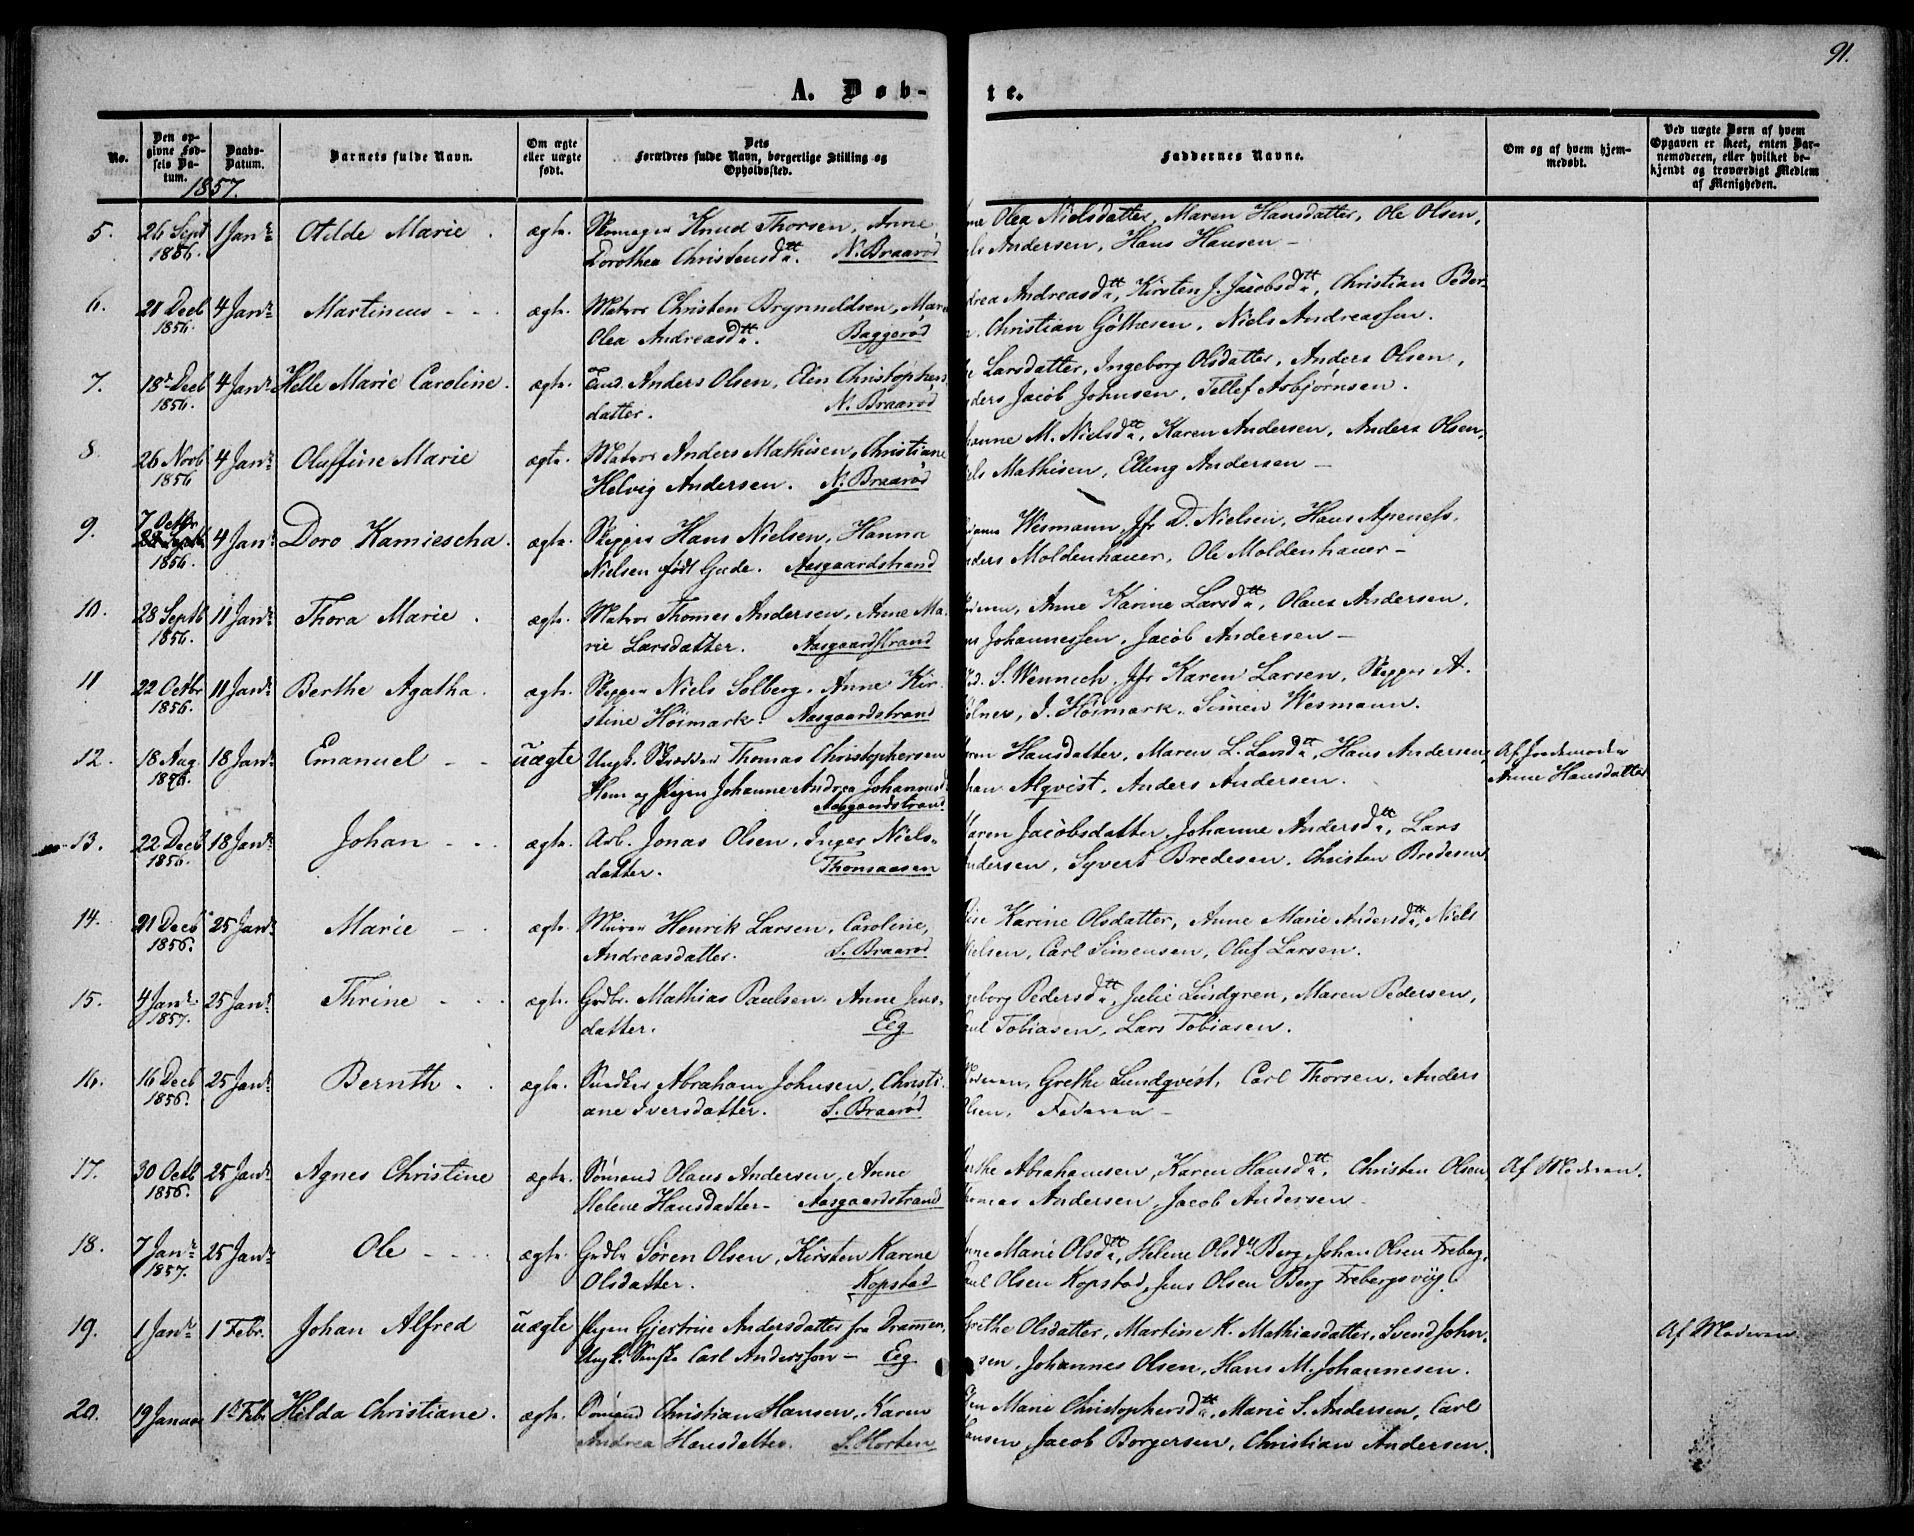 91.
A. Døb-te.
No.
Den op-
givne Fød-
sels Da-
tum.
Daabs-
Datum.
Barnets fulde Navn.
Om ægte
eller uægte
født.
Dets
Forældres fulde Navn, borgerlige Stilling og
Opholdssted.
Faddernes Navne.
Om og af hvem hjem-
medøbt.
Ved uægte Børn af hvem
Opgaven er skeet, enten Bar-
nemoderen, eller hvilket be-
kjendt og troværdigt Medlem
af Menigheden.
1857.
5. 26 Sept 1 Janr Otilde Marie. ægte. Skomager Knud Thorsen, Anne Olea Nielsdatter, Maren Hansdatter, Ole Olsen,
1856. Dorothea Christensdtt. N. Braarød Andersen, Hans Hansen –
6. 21 Decb 4 Janr Martinus - - ægte. Matros Christen Brynnildsen, Andreasdtt, Kirsten J. Jacobsdtt, Christian Peder-
1856. Olea Andreasdtt. Baggerød Christian Gøthesen, Niels Andreassen.
7. 18 Decb 4 Janr Helle Marie Caroline. ægte. Anders Olsen, Elen Christophers Larsdatter, Ingeborg Olsdatter, Anders Olsen,
1856. datter. N. Braarød Jacob Johnsen, Tellef Asbjørnsen.
8. 26 Novb 4 Janr Oluffine Marie ægte. Matros Anders Mathisen, Christiane M. Nielsdtt, Karen Andersen, Anders Olsen,
1856 Helvig Andersen. N. Braarød Mathisen, Elling Andersen –
9. 7 Octbr 4 Janr Doro Kamiescha. ægte. Skipper Hans Nielsen, Hanna Wesmann, Jfr D. Nielsen, Hans Apeness.
1856. Nielsen født Gude. Aasgaardstrand Moldenhauer, Ole Moldenhauer –
10. 28 Septb 11 Janr Thora Marie. ægte. Matros Thomes Andersen, Anne Ma- Anne Karine Larsdtt, Olaus Andersen,
1856. rie Larsdatter. Aasgaardstrand Johannessen, Jacob Andersen –
11 22 Octbr 11 Janr Berthe Agatha. ægte. Skipper Niels Solberg. Anne Kir- S. Wennech, Jfr Karen Larsen, Skipper A.
1856. stine Høsmark. Aasgaardstrand J. Høsmark. Simen Wesmann.
12. 18 Aug 18 Janr Emanuel - - uægte Ungk. Skrædder Thomas Christophersen Hansdatter, Maren L. Larsdtt, Hans Andersen, Af Jordemoder
1856. Horn og Pigen Johanne Andrea Johannesd Alqvist, Anders Andersen. Anne Hansdatter
Aasgaardstrand
13. 22 Decb 18 Janr Johan - - ægte. Arb. Jonas Olsen, Inger Niels- Jacobsdatter, Johanne Andersdtt, Lars
1856. datter. Thonsaasen Andersen, Syvert Bredesen, Christen Bredesen.
14. 21 Decb 25 Janr Marie - ægte. Murer Henrik Larsen, Caroline, Karine Olsdatter, Anne Marie Andersdtt, Niels
1856. Andreasdatter. S. Braarød Nielsen, Carl Simensen, Oluf Larsen.
15. 4 Janr 25 Janr Thrine - - ægte. Grdbr. Mathias Paulsen. Anne Jens- Pedersdtt, Julie Lindgren, Maren Pedersen,
1857. datter. Eeg Tobiasen, Lars Tobiasen.
16. 16 Decb 25 Janr Bernth. ægte. Snedker Abraham Johnsen, Christi- Moderen, Grethe Lundqvist, Carl Thorsen, Anders
1856. ane Iversdatter. S. Braarød Olsen, Faderen –
17. 30 Octb 25 Janr Agnes Christine ægte. Sømand Olaus Andersen, Anne Abrahamsen, Karen Hansdtt, Christen Olsen, Af Moderen.
1856. Helene Hansdatter – Aasgaardstrand Thomas Andersen, Jacob Andersen
18. 7 Janr 25 Janr Ole - - - ægte. Grdbr Søren Olsen, Kirsten Karine Marie Olsdtt, Helene Olsdtt Berg, Johan Olsen Freberg,
1857. Olsdatter. Kopstad Olsen Kopstad, Jens Olsen Berg Frebergsvig.
19. 1 Janr 1 Febr. Johan Alfred uægte Pigen Gjertrine Andersdatter fra Drammen, Grethe Olsdatter, Martine K. Mathiasdatter, Svend John- Af Moderen
Ungk. Carl Andersson – Eeg sen, Johannes Olsen, Hans M. Johannesen.
20. 19 Januar 1 Febr Hilda Christiane. ægte. Sømand Christian Hansen, Karen Elen Marie Christophersdtt, Marie S. Andersen, Carl
Andrea Hansdatter. S. Horten Hansen, Jacob Borgersen, Christian Andersen.